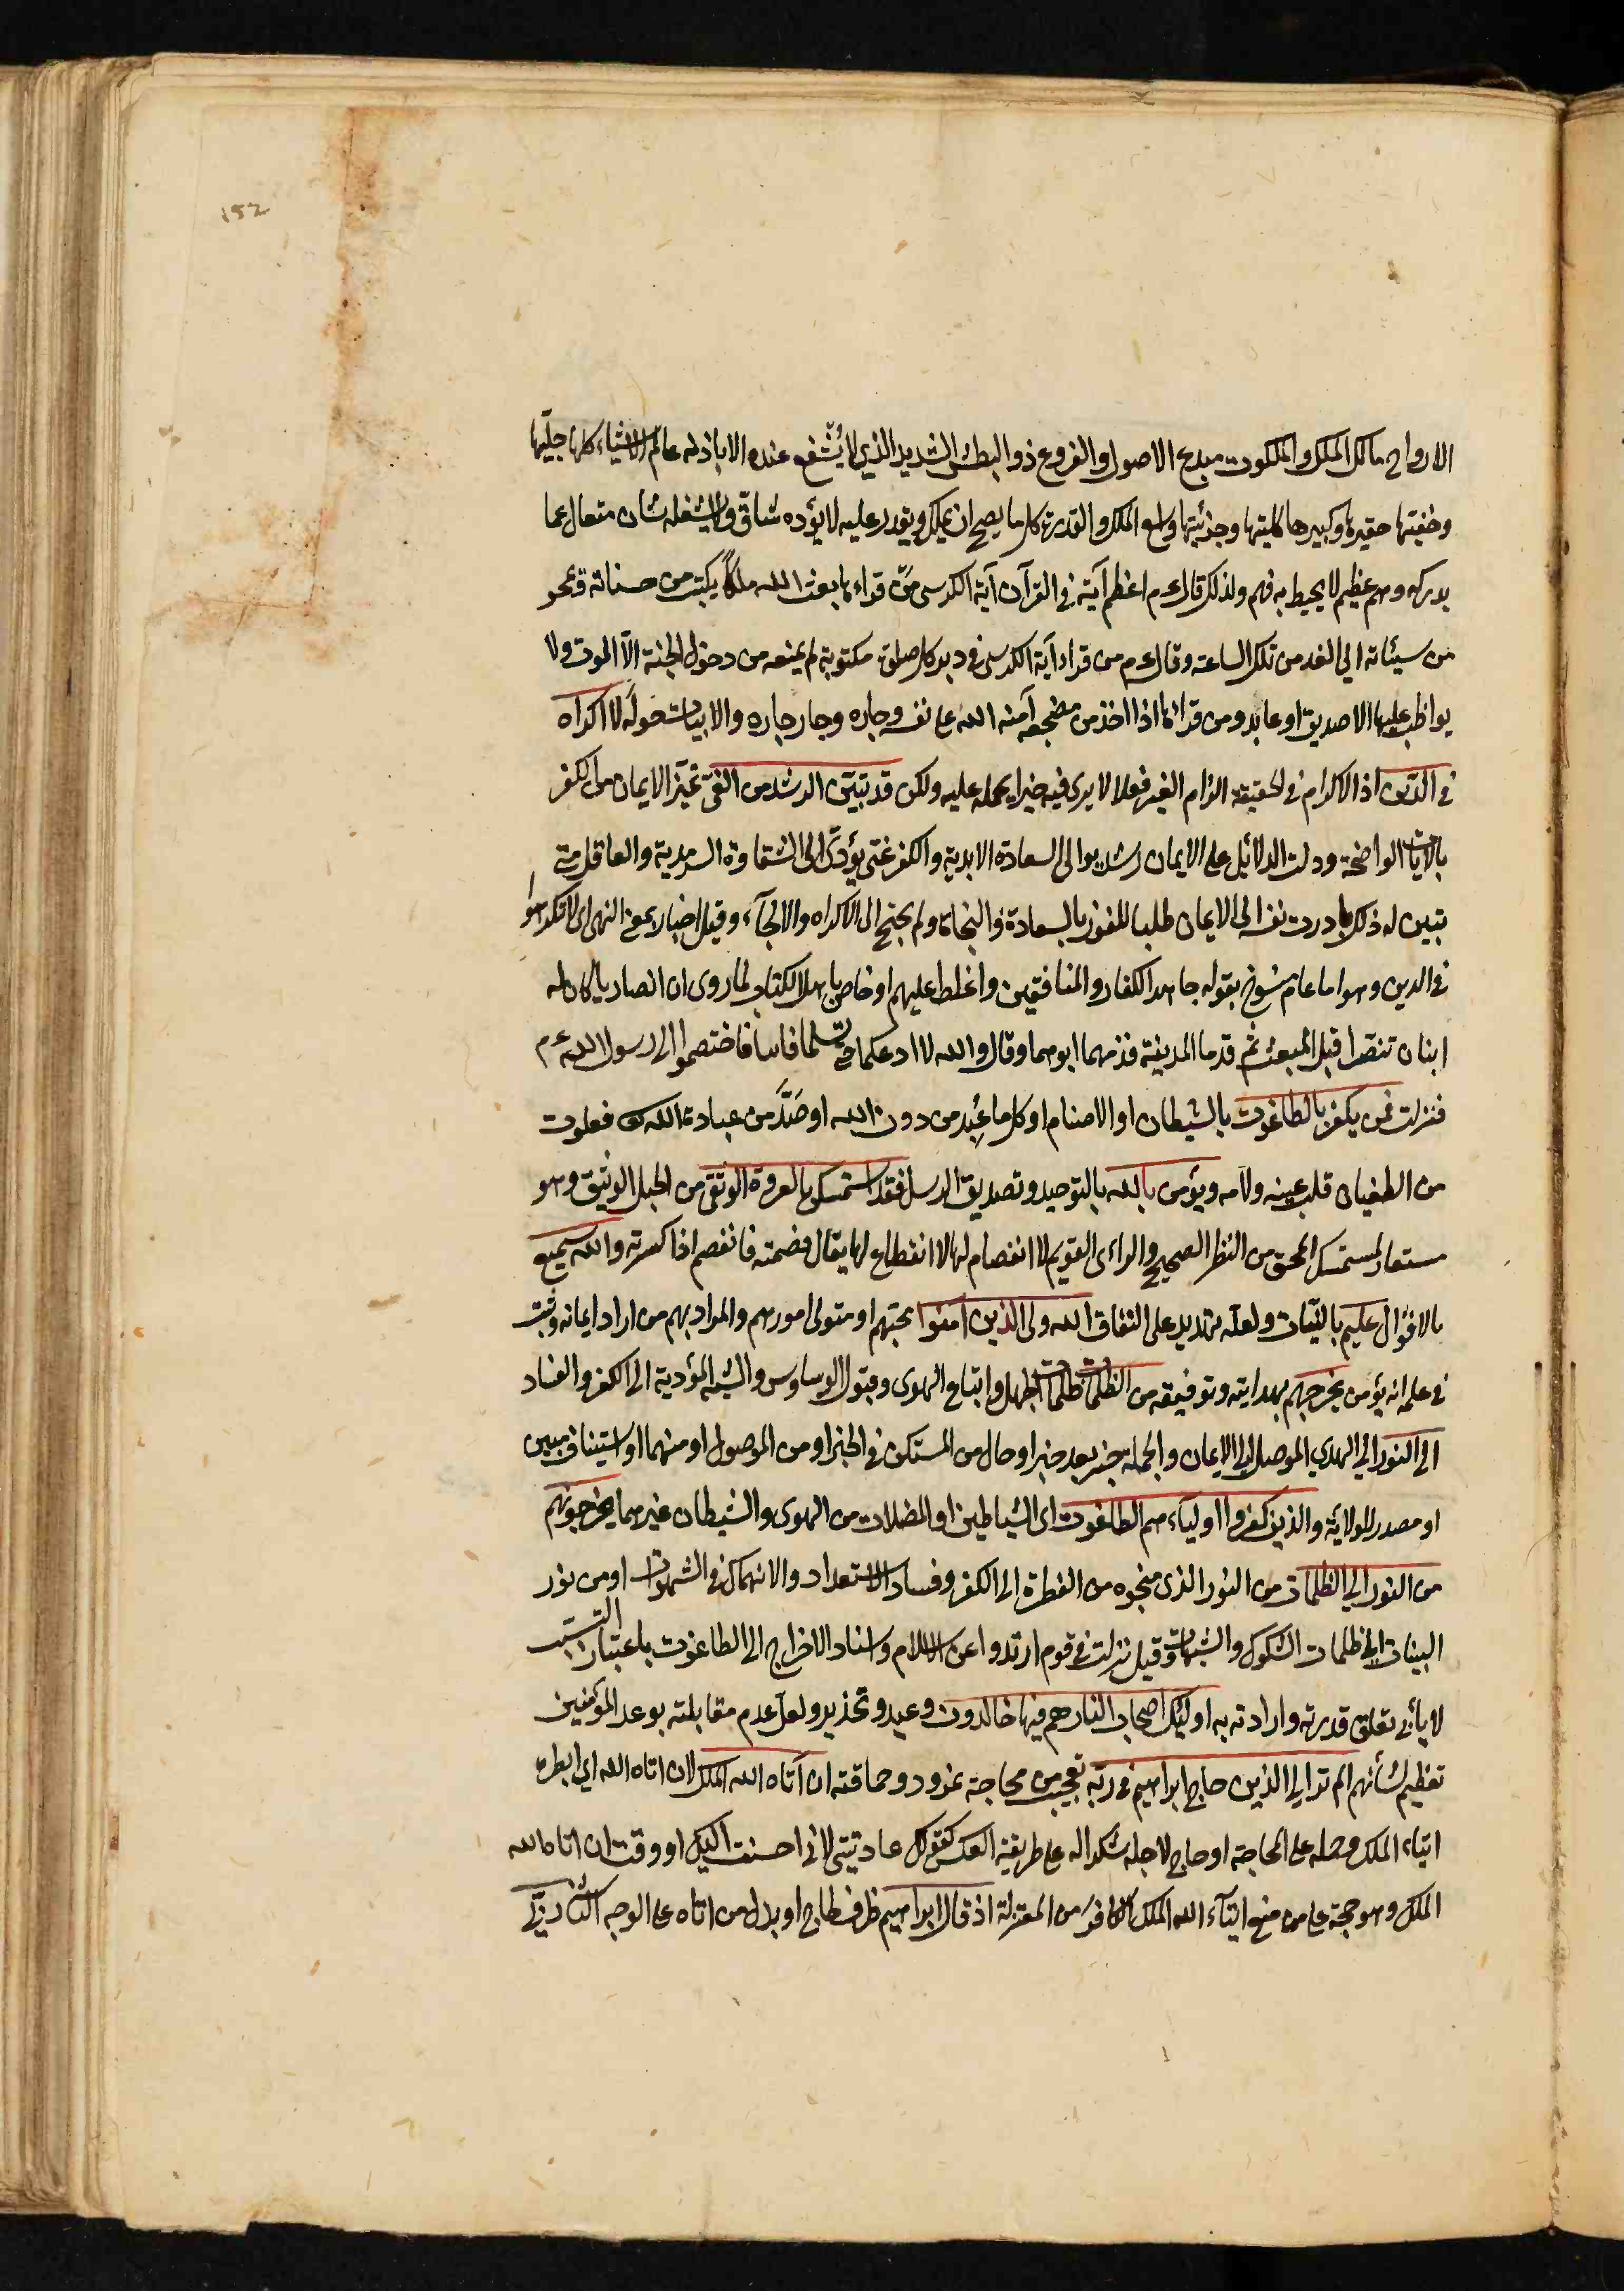 152
الارواح مالك الملك والملكوت مبدع الاصول والفروع ذو البطش الشديد الذي لا يُشفع عنده الا باذنه عالم الاشياء كلها جليّها
وخفيّها حقيرها وكبيرها كليّها وجزئيّها واسع الملك والقدرة كل ما يصح ان يملك ويقدر عليه لا يؤده شاقّ ولا يشغله شان متعال عما
يدركه وهم عظيم لا يحيط به فهم ولذلك قال عم اعظم آية في القرآن آية الكرسي مَن قراءها بعث الله ملكاً يكتب من حسناته ويمحو
من سيئاته الى الغد من تلك الساعة وقال عم من قراء آية الكرسي في دبر كل صلوة مكتوبة لم يمنعه من دخول الجنة الاّ الموت ولا
يواظب عليها الا صديق او عابد ومن قرائها اذا اخذ من مضجعه آمنه الله على نفسه وجاره وجار جاره والابيات حوله لا اكراه
في الدّين اذ الاكراه في الحقيقة الزام الغير فعلا لا يرى فيه خيرا يحمله عليه ولكن قد تبيّن الرشد من الغيّ تميّز الايمان من الكفر
بالآيات الواضحة ودلت الدلائل على الايمان رشد يوصل الى السعادة الابدية والكفر غيّ يؤدّى الى الشقاوة السرمدية والعاقل متى
تبين له ذلك بادرت نفسه الى الايمان طلبا للفوز بالسعادة والنجاة ولم يحتج الى الاكراه والالجآء وقيل اخبار بمعنى النهى اى لا تكرهوا
في الدين وهو اما عام منسوخ بقوله جاهد الكفار والمنافقين واغلظ عليهم او خاص باهل الكتاب لما روى ان انصاريا كان له
ابنان تنصّرا قبل المبعث ثم قدما المدينة فلزمهما ابوهما وقال والله لا ادعكما حتى تسلما فابيا فاختصموا الى رسول الله عم
فنزلت فمن يكفر بالطاغوت بالشيطان او الاصنام او كل ما عُبِد من دون الله او صَدَّ من عبادة الله تعا فعلوت
من الطغيان قلب عينه ولامه ويؤمن بالله بالتوحيد وتصديق الرسل فقد استمسك بالعروة الوثقى من الحبل الوثيق وهو
مستعار لمستمسك المحق من النظر الصحيح والراءى القويم لا انفصام لها لا انقطاع لها يقال فصمته فانفصم اذا كسرته والله سميع
بالاقوال عليم بالنيّات ولعله تهديد على النفاق الله ولى الذين امنوا محبّهم او متولى امورهم والمراد بهم من اراد ايمانه وثبت
في علمه انه يؤمن يخرجهم بهدايته وتوفيقه من الظلمات ظلمات الجهل واتباع الهوى وقبول الوساوس والشبه المؤدية الى الكفر والفساد
الى النور الى الهدى الموصل الى الايمان والجملة خبر بعد خبر او حال من المستكن في الخبر او من الموصول او منهما او استيناف مبين
او مصدر للولاية والذين كفروا اوليآءهم الطاغوت اى الشياطين او المضلات من الهوى والشيطان غيرهما يخرجونهم
من النور الى الظلمات من النور الذى منحوه من الفطرة الى الكفر وفساد الاستعداد والانهماك في الشهوات او من نور
البينات الى ظلمات الشكوك والشبهات وقيل نزلت في قوم ارتدوا عن الاسلام واسناد الاخراج الى الطاغوت باعتبار التسبب
لا يأبى تعلق قدرته وارادته به اولئك اصحاب النار هم فيها خالدون وعيد وتحذير ولعل عدم مقابلته بوعد المؤمنين
تعظيم لشأنهم الم تر الى الذين حاج ابراهيم في ربّه تعجيب من محاجة نمرود وحماقته ان آتاه الله الملك لان اتاه الله اى ابطره
ايتاء الملك وحمله على المحاجة او حاج لاجله شكرا له على طريقة العكس كقولك عاديتنى لانى احسنت اليك او وقت ان اتاه الله
الملك وهو حجة على من منع ايتآء الله الملك الكافر من المعتزلة اذ قال ابراهيم ظرف لحاج او بدل من اتاه على الوجه الثاني ربّي